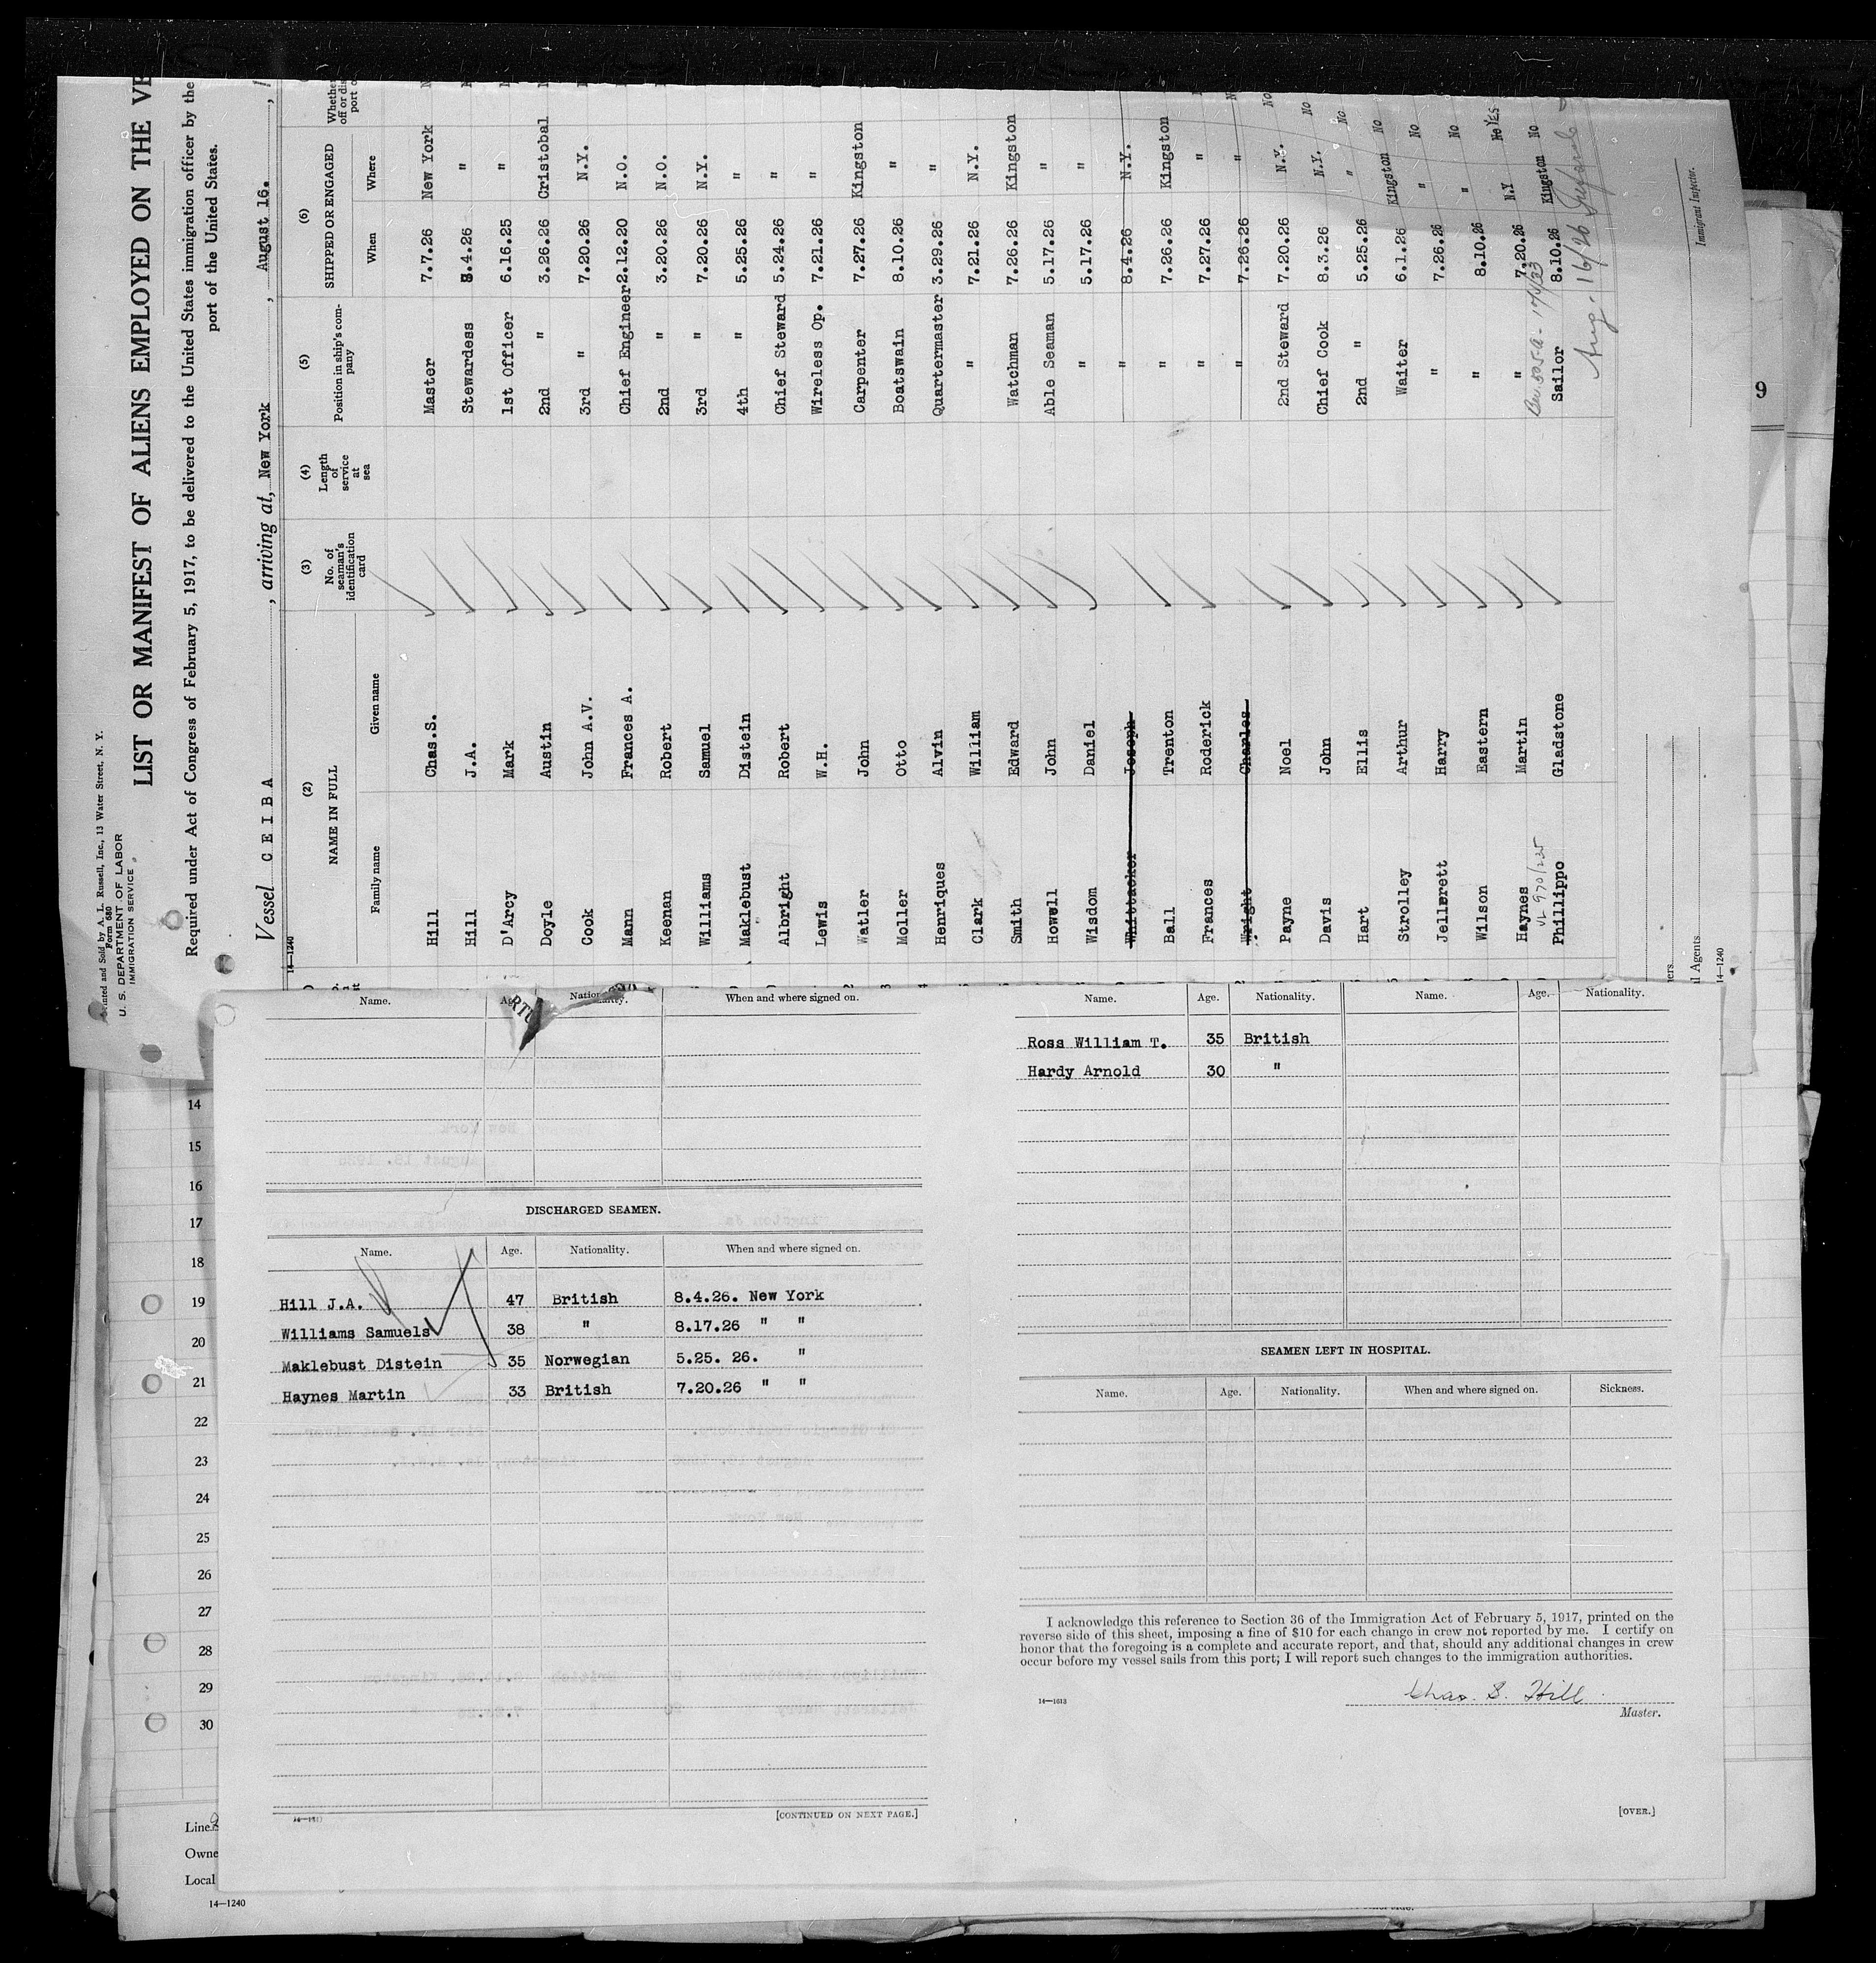 Printed and Sold by A. L. Russell, Inc., 13 Water Street, N. Y.
Form 680
U. S. DEPARTMENT OF LABOR
IMMIGRATION SERVICE
LIST OR MANIFEST OF ALIENS EMPLOYED ON THE
Required under Act of Congress of February 5, 1917, to be delivered to the United States immigration officer by the
port of the United States.
Vessel CEIBA, arriving at, New York, August 16.
14—1240
(2) (3) (4) (5) (6)
NAME IN FULL No. of seaman's identification card Length of service at sea Position in ship's company SHIPPED OR ENGAGED
Family name Given name When Where
Hill Chas.S. Master 7.7.26 New York
Hill J.A. Stewardess 8.4.26 "
D'Arcy Mark 1st Officer 6.16.25 "
Doyle Austin 2nd " 3.26.26 Cristobal
Cook John A.V. 3rd " 7.20.26 N.Y.
Mann Frances A. Chief Engineer 2.12.20 N.O.
Keenan Robert 2nd " 3.20.26 N.O.
Williams Samuel 3rd " 7.20.26 N.Y.
Maklebust Distein 4th " 5.25.26 "
Albright Robert Chief Steward 5.24.26 "
Lewis W.H. Wireless Op. 7.21.26 "
Watler John Carpenter 7.27.26 Kingston
Moller Otto Boatswain 8.10.26 "
Henriques Alvin Quartermaster 3.29.26 "
Clark William " 7.21.26 N.Y.
Smith Edward Watchman 7.26.26 Kingston
Howell John Able Seaman 5.17.26 "
Wisdom Daniel " 5.17.26 "
Whittacker Joseph " 8.4.26 N.Y.
Ball Trenton " 7.26.26 Kingston
Frances Roderick " 7.27.26 "
Wright Charles " 7.26.26 "
Payne Noel 2nd Steward 7.20.26 N.Y. No
Davis John Chief Cook 8.3.26 N.Y. No
Hart Ellis 2nd " 5.25.26 " No
Strolley Arthur Waiter 6.1.26 Kingston No
Jellerett Harry " 7.26.26 " No
Wilson Eastern " 8.10.26 " No
Haynes Martin " 7.20.26 N.Y No YES
Phillippo Gladstone Sailor 8.10.26 Kingston No
Aug. 16/26
Immigrant Inspector.
l Agents
14—1240
9
Name. Age. Nationality. When and where signed on.
DISCHARGED SEAMEN.
Name. Age. Nationality. When and where signed on.
Hill J.A. 47 British 8.4.26. New York
Williams Samuels 38 " 8.17.26 " "
Maklebust Distein 35 Norwegian 5.25. 26. "
Haynes Martin 33 British 7.20.26 " "
[CONTINUED ON NEXT PAGE.]
Name. Age. Nationality. Name. Age. Nationality.
Ross William T. 35 British
Hardy Arnold 30 "
SEAMEN LEFT IN HOSPITAL.
Name. Age. Nationality. When and where signed on. Sickness.
I acknowledge this reference to Section 36 of the Immigration Act of February 5, 1917, printed on the
reverse side of this sheet, imposing a fine of $10 for each change in crew not reported by me. I certify on
honor that the foregoing is a complete and accurate report, and that, should any additional changes in crew
occur before my vessel sails from this port; I will report such changes to the immigration authorities.
14—1613
Chas. S. Hill
Master.
[OVER.]
14
15
16
17
18
19
20
21
22
23
24
25
26
27
28
29
30
Line
Owne
Local
14—1240